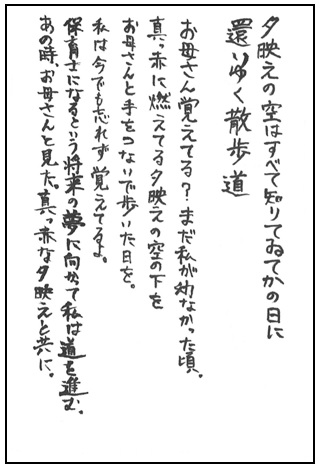 夕映えの空はすべて知りてゐてかの日に
還りゆく散歩道
お母さん覚えてる？まだ私が幼なかった頃。
真っ赤に燃えてる夕映えの空の下を
お母さんと手をつないで歩いた日を。
私は今でも忘れず覚えてるよ。
保育士になるという将来の夢に向かって私は道を進む。
あの時、お母さんと見た。真っ赤な夕映えと共に。